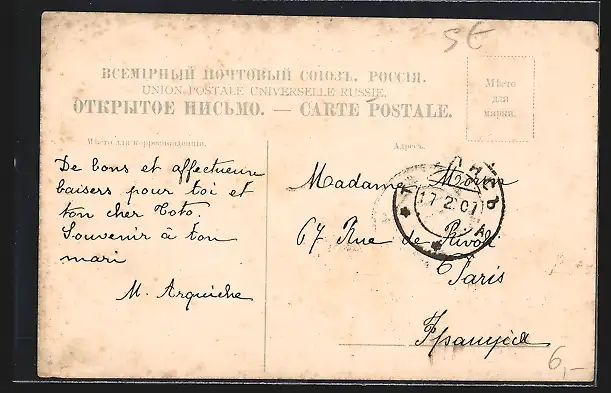 5€
ВСЕМІРНЫЙ ПОЧТОВЫЙ СОЮЗЪ. РОССІЯ.
UNION POSTALE UNIVERSELLE RUSSIE.
ОТКРЫТОЕ ПИСЬМО. — CARTE POSTALE.
Мѣсто
для
марки.
Мѣсто для корреспонденціи.
Адресъ.
De bons et affectueux
baisers pour toi et
ton cher Toto.
Souvenir à ton
mari
M. Arquiche
Madame Morin
67 Rue de Rivoli
Paris
Франція
17 2 07
6,-